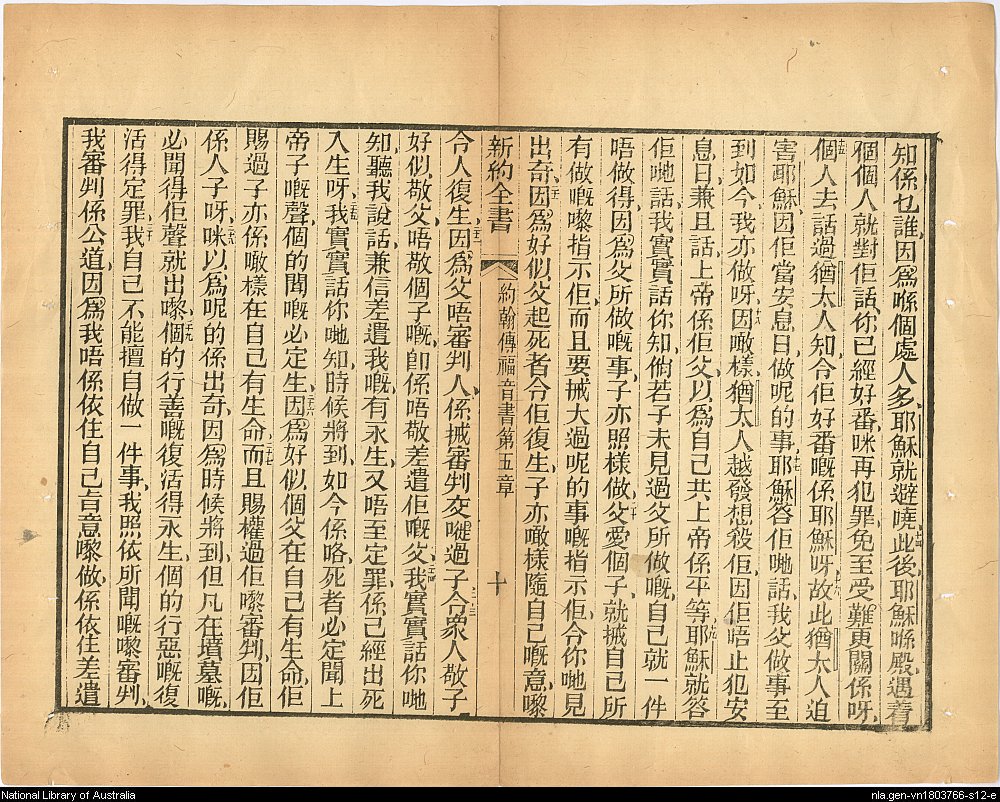 知係乜誰、因爲喺個處人多、耶穌就避曉、十四此後耶穌喺殿、遇着
個個人、就對佢話、你已經好番、咪再犯罪、免至受難更關係呀、
十五個人去話過猶太人知、令佢好番嘅係耶穌呀、十六故此猶太人迫
害耶穌、因佢當安息日做呢的事、十七耶穌答佢哋話、我父做事至
到如今、我亦做呀、十八因噉樣、猶太人越發想殺佢、因佢唔止犯安
息日、兼且話、上帝係佢父、以爲自己共上帝係平等、十九耶穌就答
佢哋話、我實實話你知、倘若子未見過父所做嘅、自己就一件
唔做得、因爲父所做嘅事、子亦照樣做、二十父愛個子、就搣自己所
有做嘅嚟指示佢、而且要搣大過呢的事嘅指示佢、令你哋見
出奇、二一因爲好似父起死者、令佢復生、子亦噉樣隨自己嘅意、嚟
新約全書 約翰傳福音書第五章 十
令人復生、二二因爲父唔審判人、係搣審判交嘥過子、二三令眾人敬子
好似敬父、唔敬個子嘅、卽係唔敬差遣佢嘅父、二四我實實話你哋
知、聽我說話、兼信差遣我嘅、有永生、又唔至定罪、係已經出死
入生呀、二五我實實話你哋知、時候將到、如今係咯、死者必定聞上
帝子嘅聲、個的聞嘅必定生、二六因爲好似個父在自己有生命、佢
賜過子亦係噉樣在自己有生命、二七而且賜權過佢嚟審判、因佢
係人子呀、二八咪以爲呢的係出奇、因爲時候將到、但凡在墳墓嘅、
必聞得佢聲就出嚟、二九個的行善嘅復活得永生、個的行惡嘅復
活得定罪、三十我自己不能擅自做一件事、我照依所聞嘅嚟審判、
我審判係公道、因爲我唔係依住自己旨意嚟做、係依住差遣
National Library of Australia
nla.gen-vn1803766-s12-e